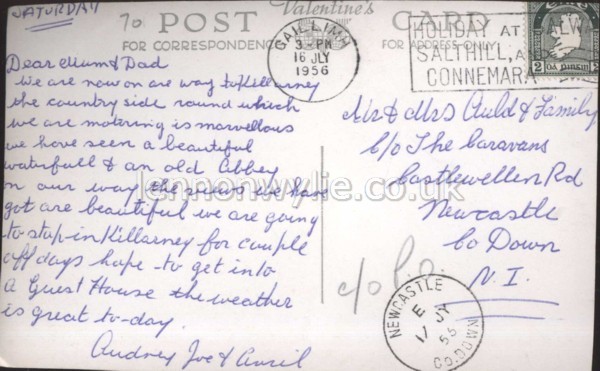 SATURDAY
70 POST CARD
Valentine's
FOR CORRESPONDENCE
FOR ADDRESS ONLY
GAILLIMH
3 PM
16 JLY
1956
HOLIDAY AT
SALTHILL, A
CONNEMARA
2
Dear Mum & Dad
We are now on are way to Killarney
the country side round which
we are motering is marvellous
we have seen a beautiful
waterfull & an old Abbey
on our way the views we have
got are beautiful we are going
to stop in Killarney for couple
off days hope to get into
a Guest House the weather
is great to-day.
Audrey Joe & Avril
Mr & Mrs Auld & Family
C/o The Caravans
Castlewellen Rd
Newcastle
Co Down
N. I.
c/o P.O.
NEWCASTLE
E
17 JY
56
CO. DOWN
lennonwylie.co.uk